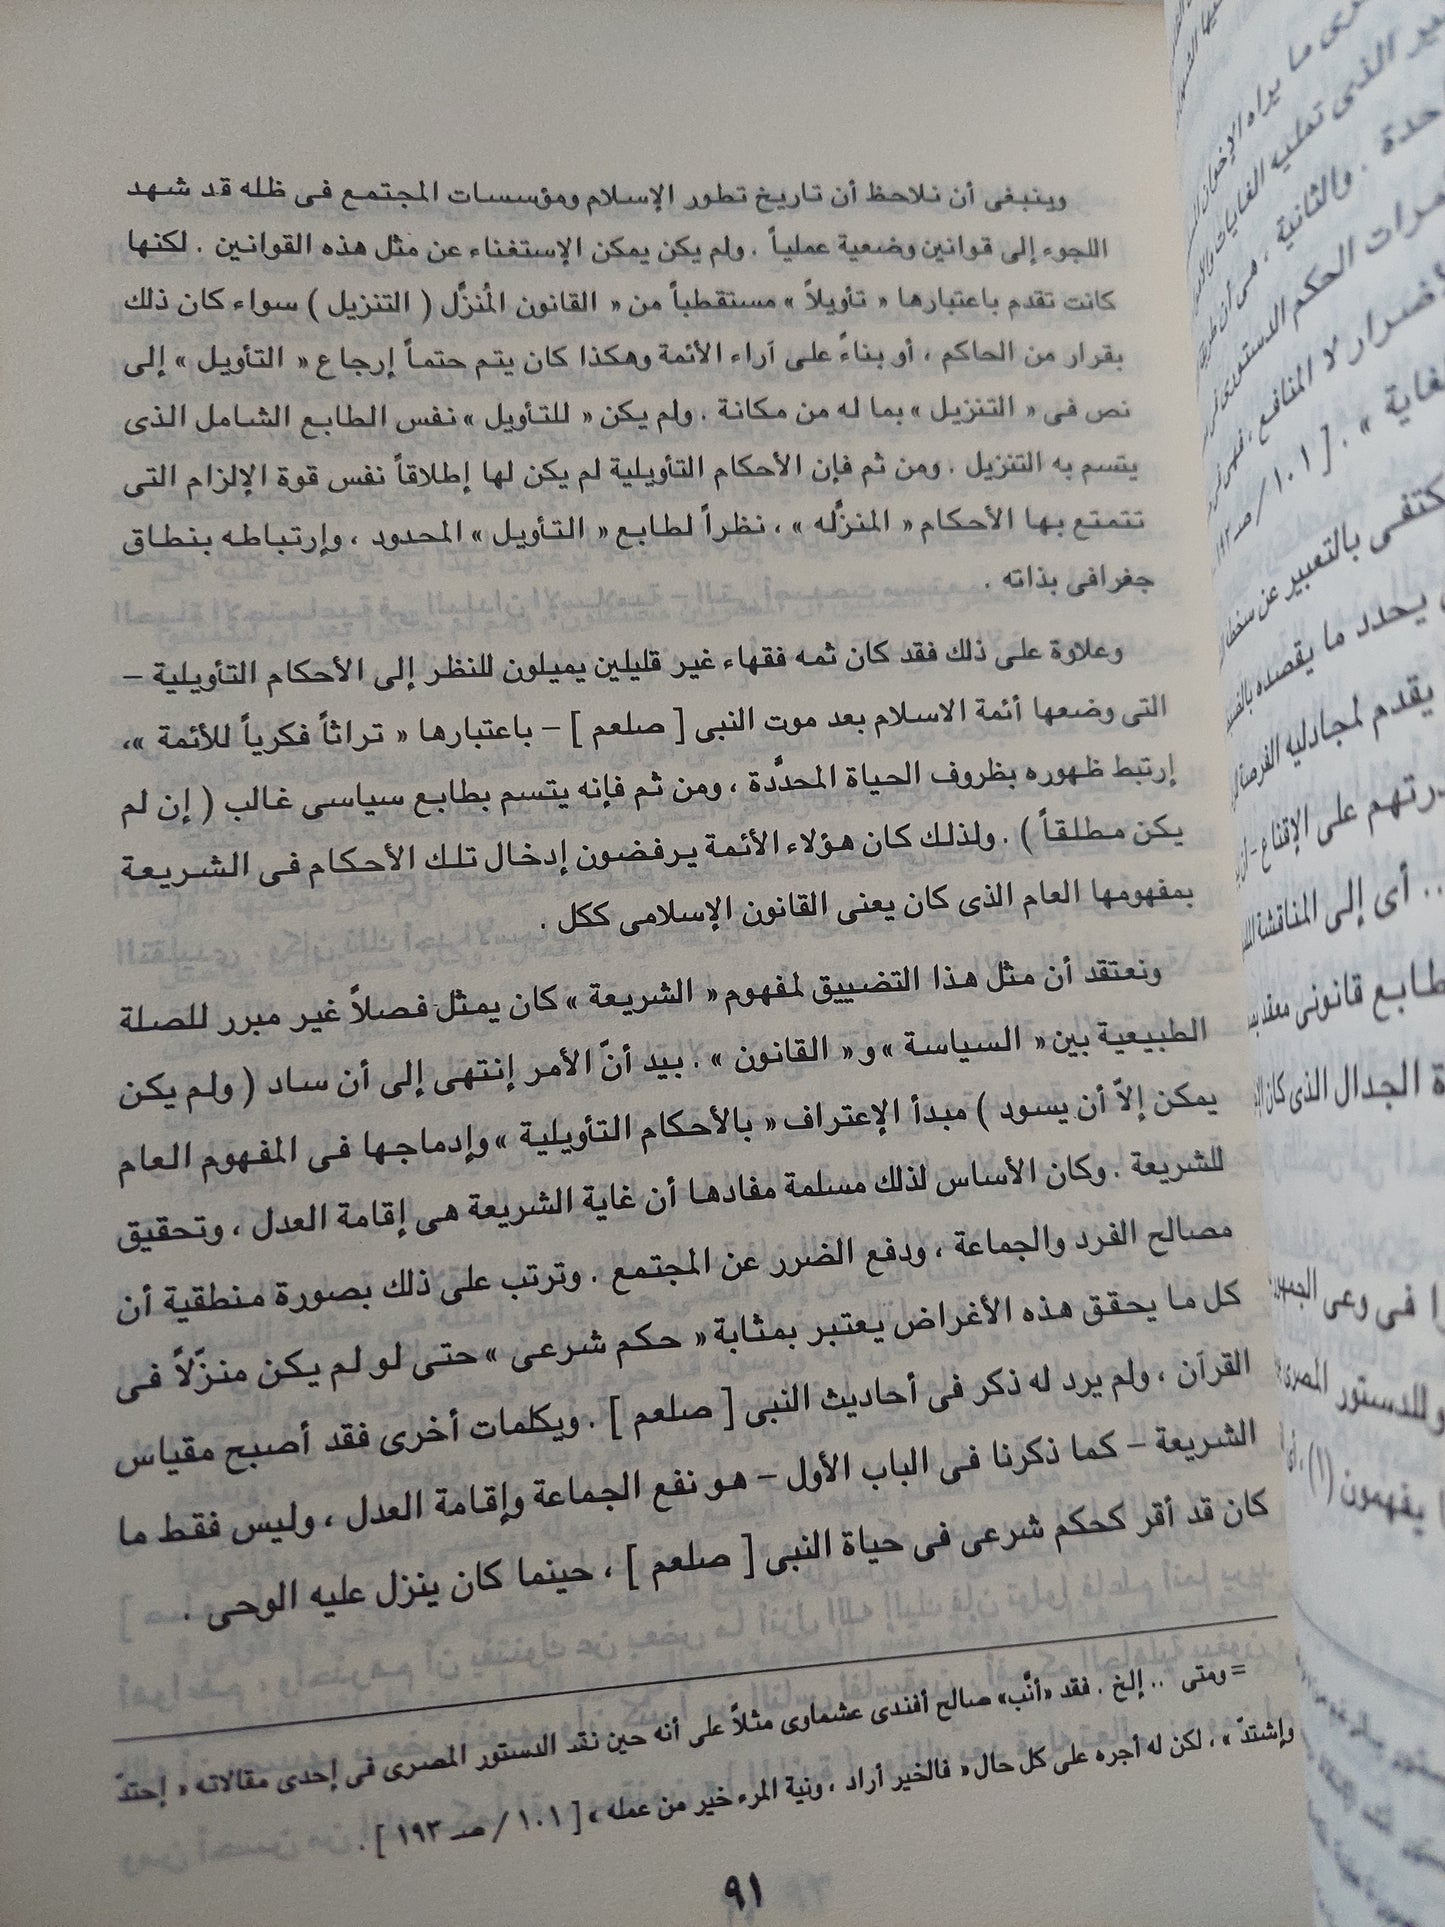 وينبغى أن نلاحظ أن تاريخ تطور الإسلام ومؤسسات المجتمع فى ظله قد شهد
اللجوء إلى قوانين وضعية عملياً . ولم يكن يمكن الإستغناء عن مثل هذه القوانين . لكنها
كانت تقدم باعتبارها « تأويلاً » مستقطباً من « القانون المُنزَّل ( التنزيل ) سواء كان ذلك
بقرار من الحاكم ، أو بناءً على آراء الأئمة وهكذا كان يتم حتماً إرجاع « التأويل » إلى
نص فى « التنزيل » بما له من مكانة . ولم يكن « للتأويل » نفس الطابع الشامل الذى
يتسم به التنزيل . ومن ثم فإن الأحكام التأويلية لم يكن لها إطلاقاً نفس قوة الإلزام التى
تتمتع بها الأحكام « المنزَّله » ، نظراً لطابع « التأويل » المحدود ، وإرتباطه بنطاق
جغرافى بذاته .
وعلاوة على ذلك فقد كان ثمه فقهاء غير قليلين يميلون للنظر إلى الأحكام التأويلية –
التى وضعها أئمة الاسلام بعد موت النبى [ صلعم ] – باعتبارها « تراثاً فكرياً للأئمة »،
إرتبط ظهوره بظروف الحياة المحدَّدة ، ومن ثم فإنه يتسم بطابع سياسى غالب ( إن لم
يكن مطلقاً ) . ولذلك كان هؤلاء الأئمة يرفضون إدخال تلك الأحكام فى الشريعة
بمفهومها العام الذى كان يعنى القانون الإسلامى ككل .
ونعتقد أن مثل هذا التضييق لمفهوم « الشريعة » كان يمثل فصلاً غير مبرر للصلة
الطبيعية بين « السياسة » و « القانون » . بيد أنّ الأمر إنتهى إلى أن ساد ( ولم يكن
يمكن إلاّ أن يسود ) مبدأ الإعتراف « بالأحكام التأويلية » وإدماجها فى المفهوم العام
للشريعة . وكان الأساس لذلك مسلمة مفادها أن غاية الشريعة هى إقامة العدل ، وتحقيق
مصالح الفرد والجماعة ، ودفع الضرر عن المجتمع . وترتب على ذلك بصورة منطقية أن
كل ما يحقق هذه الأغراض يعتبر بمثابة « حكم شرعى » حتى لو لم يكن منزّلاً فى
القرآن ، ولم يرد له ذكر فى أحاديث النبى [ صلعم ] . وبكلمات أخرى فقد أصبح مقياس
الشريعة – كما ذكرنا فى الباب الأول – هو نفع الجماعة وإقامة العدل ، وليس فقط ما
كان قد أقر كحكم شرعى فى حياة النبى [ صلعم ] ، حينما كان ينزل عليه الوحى .
= ومتى .. إلخ . فقد «أنَّب» صالح أفندى عشماوى مثلاً على أنه حين نقد الدستور المصرى فى إحدى مقالاته « إحتدّ
وإشتدّ » ، لكن له أجره على كل حال « فالخير أراد ، ونية المرء خير من عمله » [ ١٠١ / صـ ١٩٣ ] .
٩١